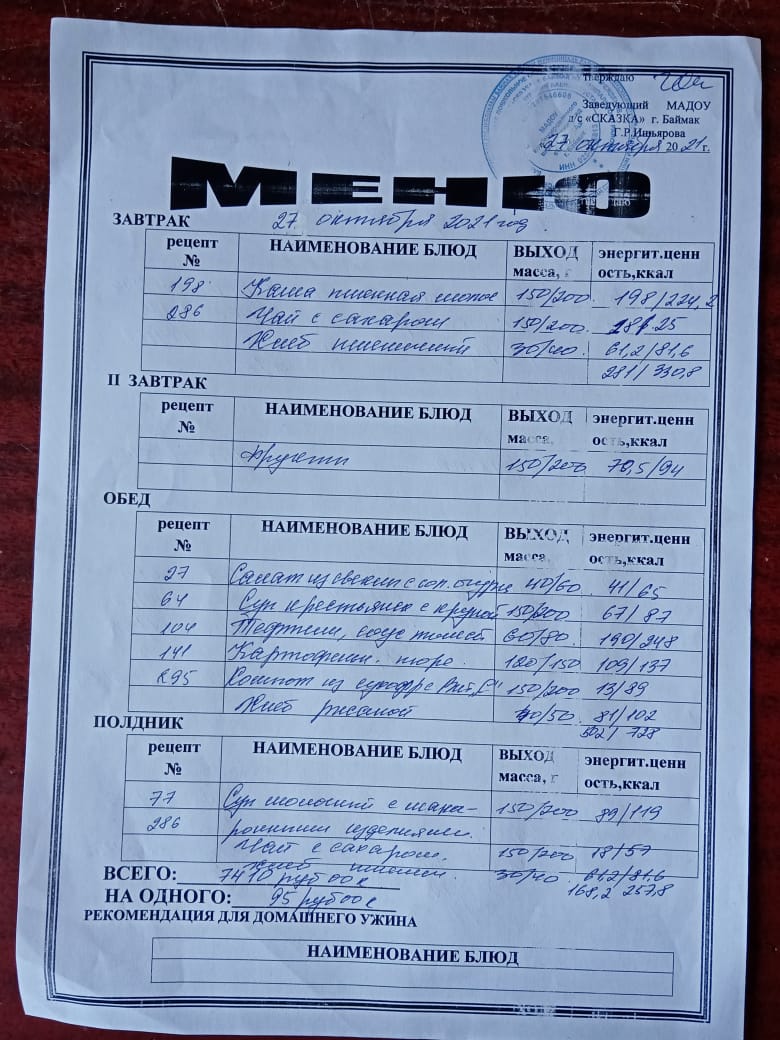 Утверждаю
Заведующий МАДОУ
д/с «СКАЗКА» г. Баймак
Г.Р.Ишьярова
27 октября 2021 г.
МЕНЮ
ЗАВТРАК 27 октября 2021 год.
рецепт № НАИМЕНОВАНИЕ БЛЮД ВЫХОД масса, г энергит.ценн ость,ккал
198 Каша пшенная молоч 150/200 198/224,2
286 Чай с сахаром 150/200 25
Хлеб пшеничный 30/40 61,2/81,6
281/330,8
II ЗАВТРАК
рецепт № НАИМЕНОВАНИЕ БЛЮД ВЫХОД масса, энергит.ценн ость,ккал
Фрукты 150/200 70,5/94
ОБЕД
рецепт № НАИМЕНОВАНИЕ БЛЮД ВЫХОД масса, энергит.ценн ость,ккал
27 Салат из свеклы с сол. огурц 40/60 41/65
64 Суп крестьянск с крупой 150/200 67/87
104 Тефтели, соус томатн 60/80 190/248
141 Картофельн. пюре 120/150 109/137
295 Компот из сухофр с Вит „С" 150/200 13/89
Хлеб ржаной 40/50 81/102
502/728
ПОЛДНИК
рецепт № НАИМЕНОВАНИЕ БЛЮД ВЫХОД масса, г энергит.ценн ость,ккал
77 Суп молочный с мака- 150/200 89/119
286 ронными изделиями.
Чай с сахаром. 150/200 18/57
Хлеб пшенич. 30/40 61.2/81,6
168,2 257,8
ВСЕГО: 7410 руб 00 к
НА ОДНОГО: 95 руб 00 к
РЕКОМЕНДАЦИЯ ДЛЯ ДОМАШНЕГО УЖИНА
НАИМЕНОВАНИЕ БЛЮД